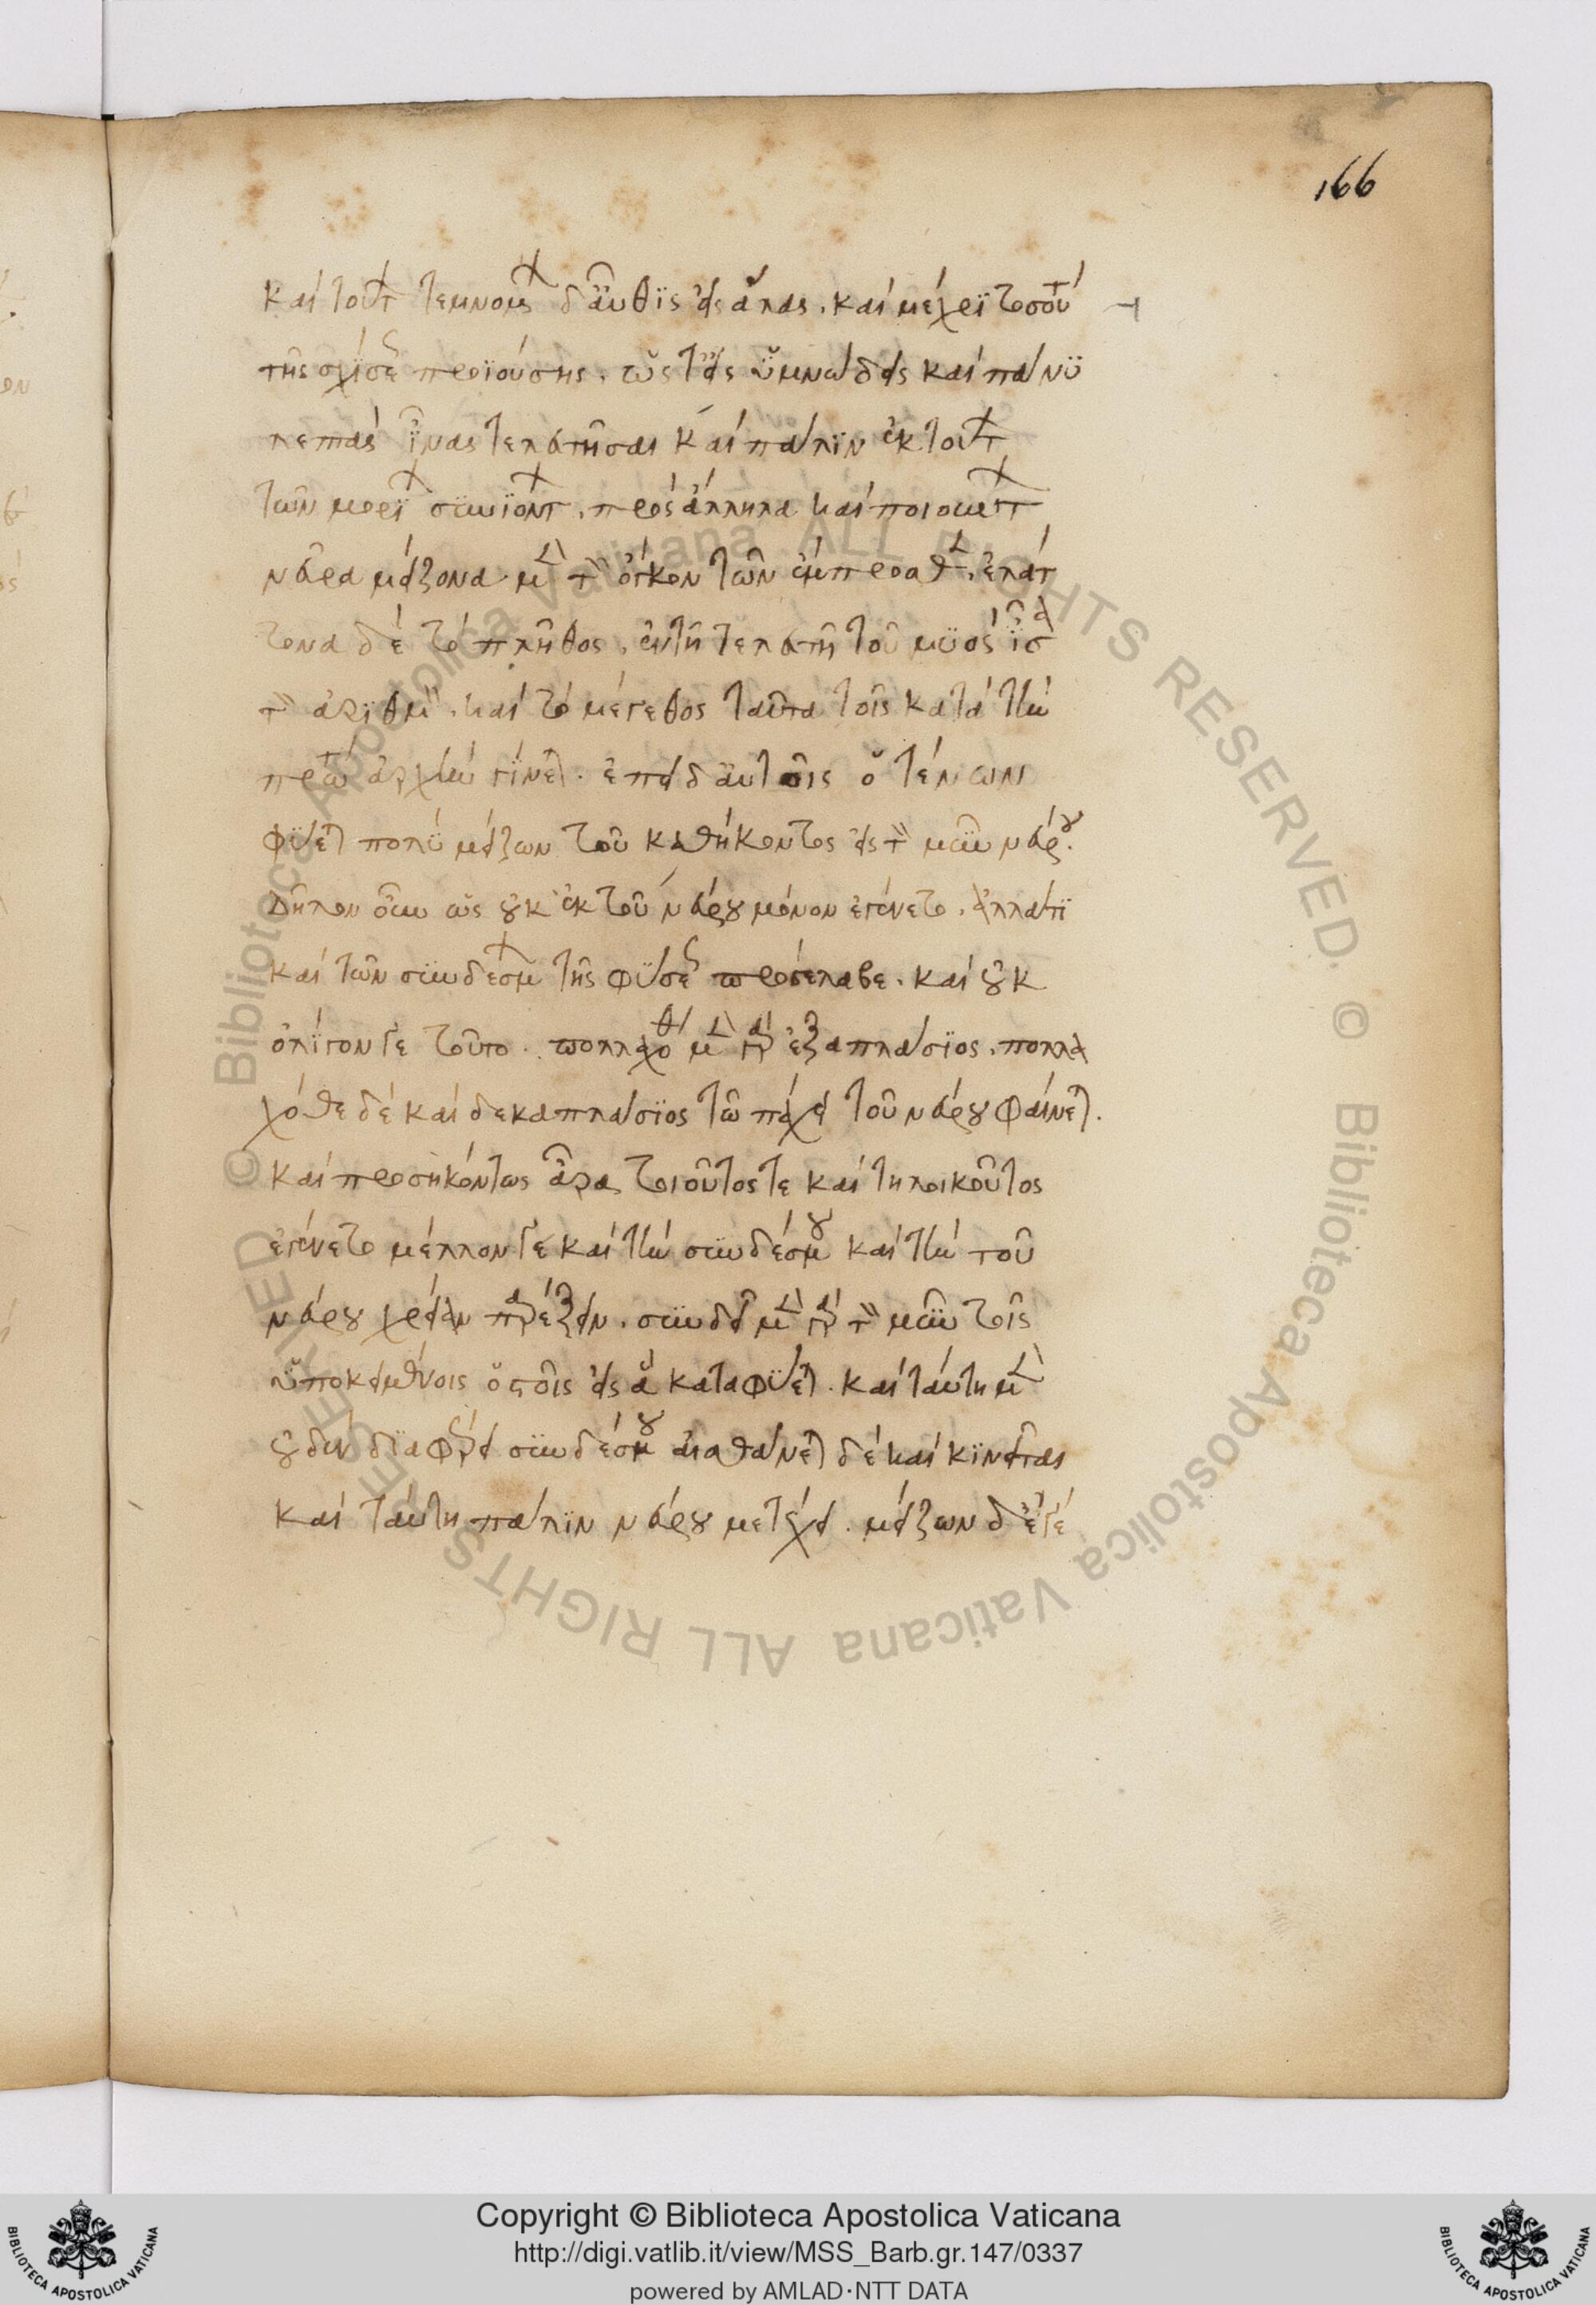 166
καὶ τούτων τεμνομένων δ' αὖθις εἰς ἄλλας. καὶ μέχρι τοσούτου
τῆς σχίσεως προϊούσης. ὡς εἰς ὑμενώδεις καὶ πάνυ
λεπτὰς ἶνας τελευτῆσαι καὶ πάλιν ἐκ τούτων
τῶν μορίων συνιόντων πρὸς ἄλληλα καὶ ποιούντων
νεῦρα μείζονα μὲν τὸν ὄγκον τῶν ἔμπροσθεν. ἐλάτ
τονα δὲ τὸ πλῆθος. ἐν τῇ τελευτῇ τοῦ μυὸς ἴσα
τὸν ἀριθμὸν. καὶ τὸ μέγεθος ταῦτα τοῖς κατὰ τὴν
πρώτην ἀρχὴν γίνεται. ἐπεὶ δ' αὐτοῖς ὁ τένων
φύεται πολὺ μείζων τοῦ καθήκοντος εἰς τὸν μῦν νεύρου.
δῆλον οὖν ὡς οὐκ ἐκ τοῦ νεύρου μόνον ἐγένετο. ἀλλά τι
καὶ τῶν συνδέσμων τῆς φύσεως προσέλαβε. καὶ οὐκ
ὀλίγον γε τοῦτο. πολλαχόθι μὲν γὰρ ἑξαπλάσιος. πολλα
χόθι δὲ καὶ δεκαπλάσιος τῷ πάχει τοῦ νεύρου φαίνεται.
καὶ προσηκόντως ἄρα τοιοῦτός τε καὶ τηλικοῦτος
ἐγένετο μέλλων γε καὶ τὴν συνδέσμου καὶ τὴν τοῦ
νεύρου χρείαν παρέξειν. συνδεῖ μὲν γὰρ τὸν μῦν τοῖς
ὑποκειμένοις ὀστοῖς εἰς ἃ καταφύεται. καὶ ταύτῃ μὲν
οὐδὲν διαφέρει συνδέσμου αἰσθάνεται δὲ καὶ κινεῖται
καὶ ταύτῃ πάλιν νεύρου μετέχει. μείζων δ' ἐγέ
Copyright © Biblioteca Apostolica Vaticana
http://digi.vatlib.it/view/MSS_Barb.gr.147/0337
powered by AMLAD·NTT DATA